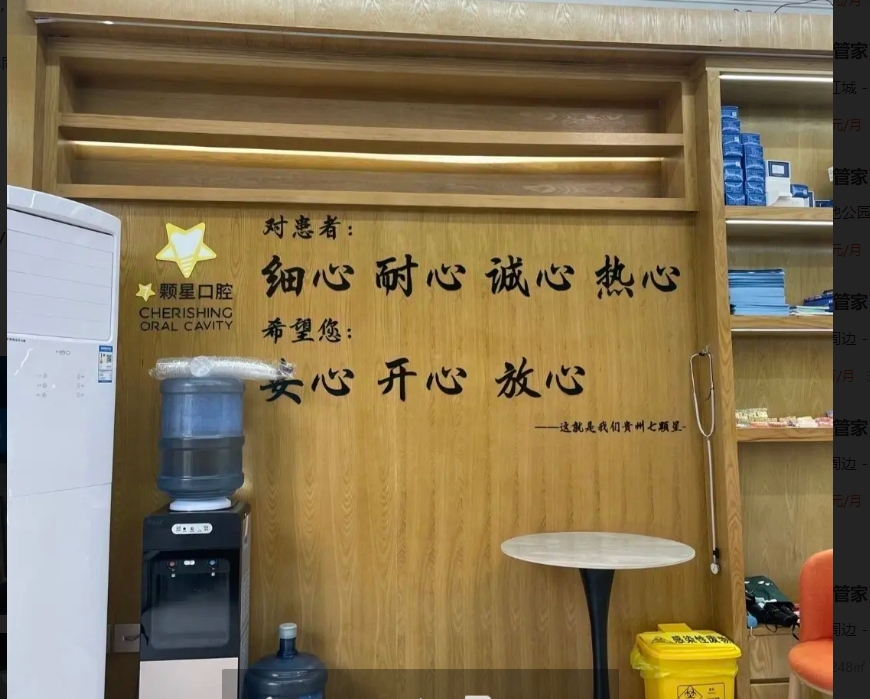 对患者：
细心 耐心 诚心 热心
颗星口腔
CHERISHING
ORAL CAVITY
希望您：
安心 开心 放心
——这就是我们贵州七颗星-
感染性废物
管家
江城 -
元/月
管家
元/月
管家
周边 -
/月
管家
周边 -
元/月
管家
周边 -
248㎡